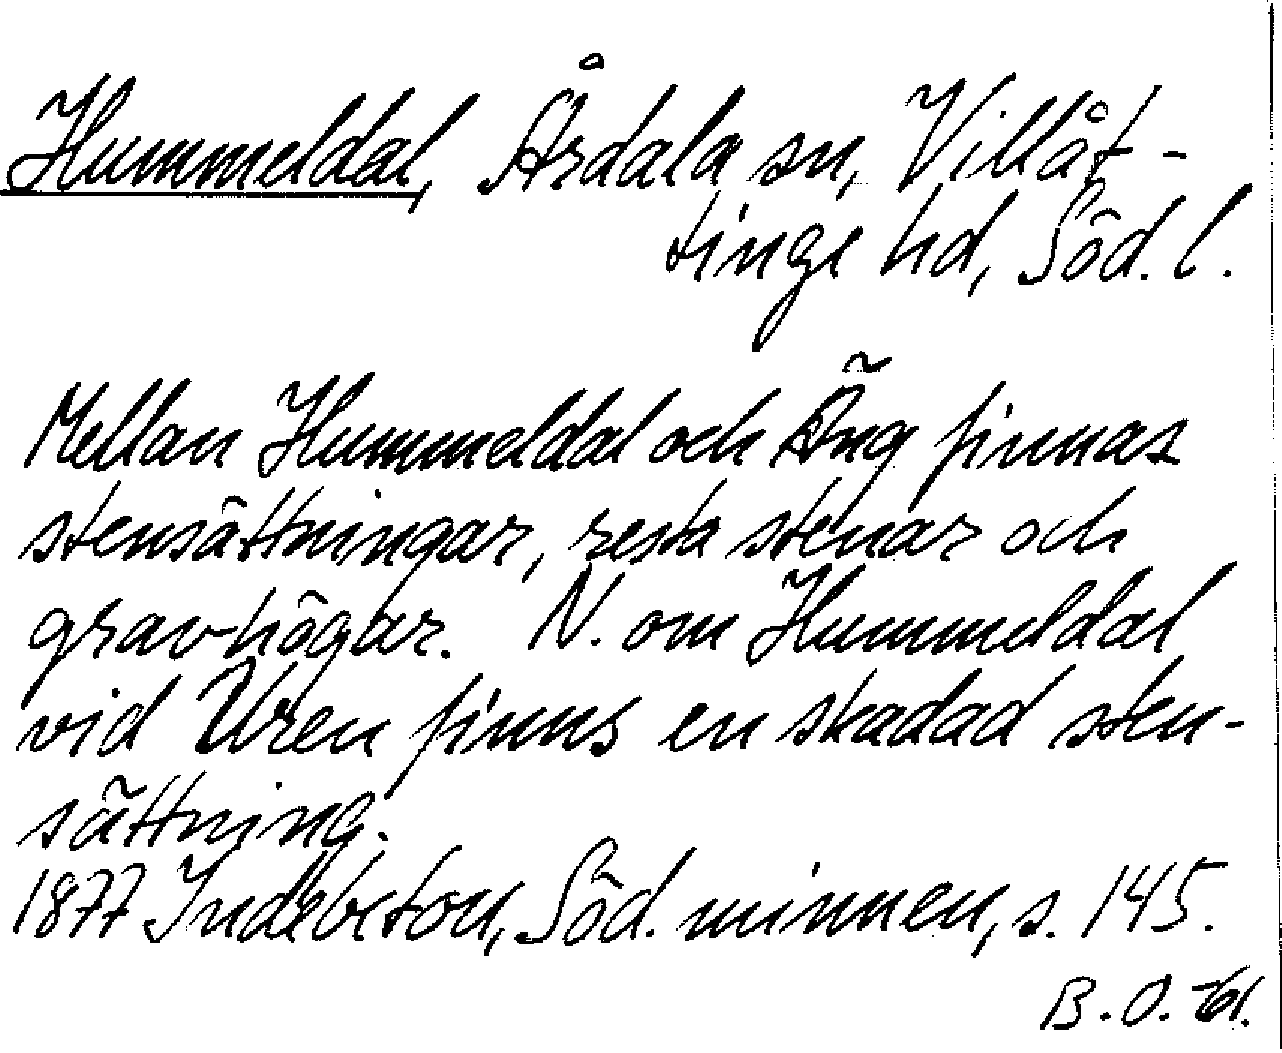 Hummeldal, Årdala sn, Villåt-
tinge hd, Söd. l.
Mellan Hummeldal och Äng finnas
stensättningar, resta stenar och
gravhögar. N. om Hummeldal
vid Uren finns en skadad sten-
sättning.
1877 Indebetou, Söd. minnen, s. 145.
B. O. -61.